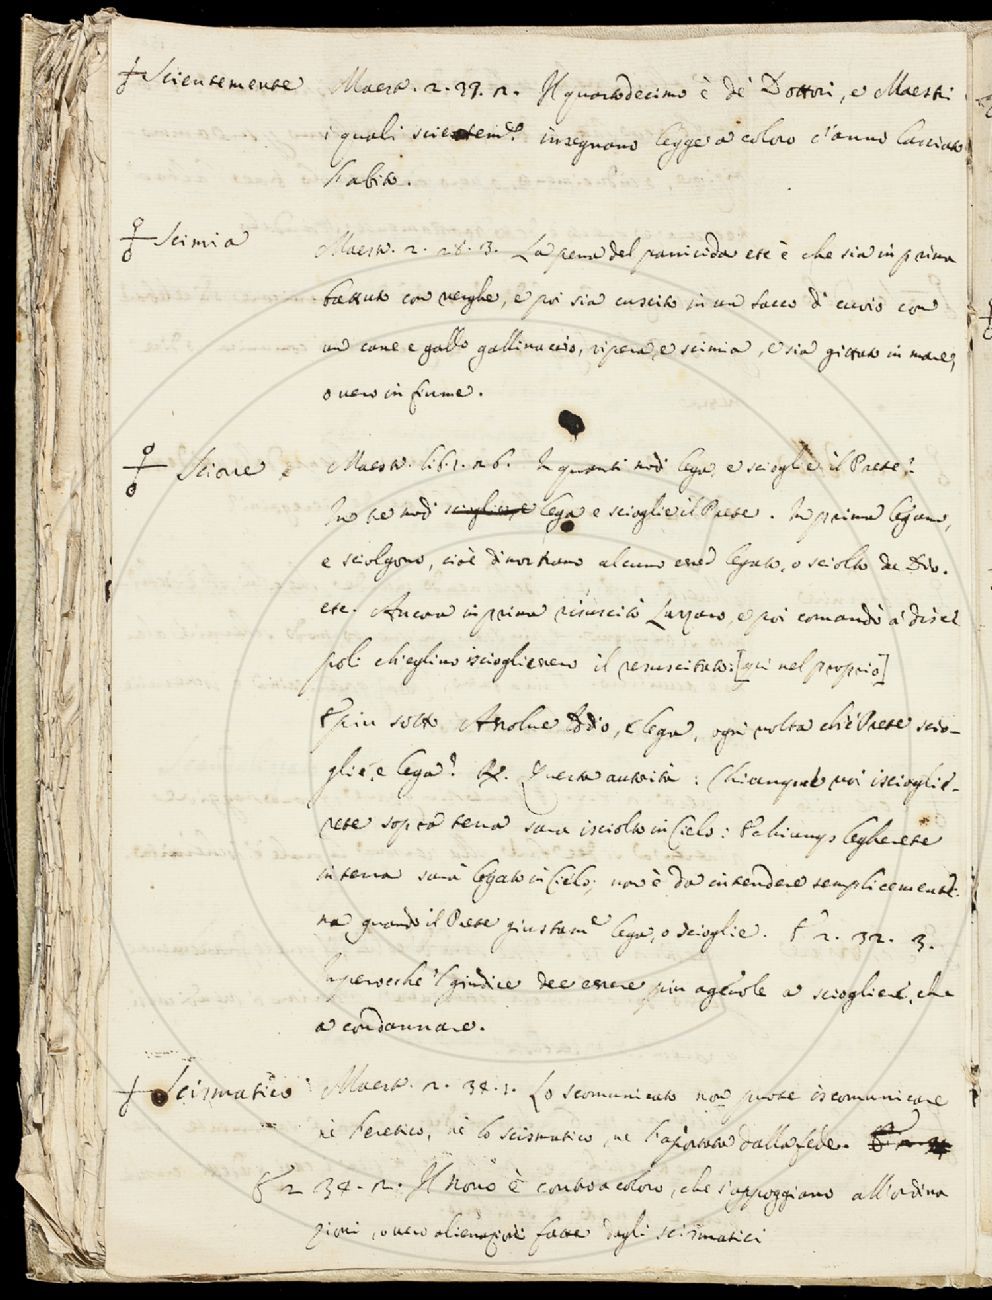 Scientemente Maestr. 2. 39. 2. Il quartodecimo è de' Dottori, e Maestri
i quali scientem.e insegnano legge a coloro c'anno lasciato
l'abito.
Scimia Maestr. 2. 28. 3. La pena del parricida etc è che sia in prima
battuto con verghe, e poi sia cuscito in un sacco di cuoio con
un cane e gallo gallinaccio, vipera, e scimia, e sia gittato in mare,
o vero in fiume.
Sciorre Maestr. lib. 1. 26. In quanti modi lega, e scioglie il Prete?
In tre modi scioglie, e lega e scioglie il Prete. In prima legano,
e sciolgono, cioè dimostrano alcuno esser legato, o sciolto da Dio.
etc. Ancora in prima risuscitò Lazzaro, e poi comandò a' disce
poli ch'eglino isciogliessero il resuscitato: [qui nel proprio]
E più sotto Assolve Iddio, e lega, ogni volta che 'l Prete scio-
glie, e lega? R. Questa autorità: Chiunque voi iscioglie-
rete sopra terra sarà isciolto in Cielo: E chiunq legherete
in terra sarà legato in Cielo; non è da intendere semplicemente:
ma quando il Prete giustam.e lega, o scioglie. E 2. 32. 3.
Imperocchè 'l giudice dee essere più agevole a sciogliere, che
a condannare.
Scismatico Maestr. 2. 34. 1. Lo scomunicato non puote iscomunicare
nè l'eretico, nè lo scismatico, ne l'apostata dalla fede.
E 2 34. 2. Il Nono è contro a coloro, che s'appoggiano all'ordina
zioni, o vero alienazioni fatte dagli scismatici